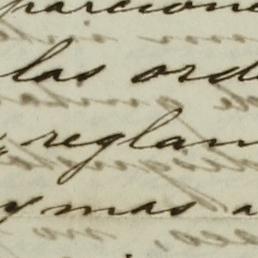 parcion
las ord
reglam
y mas a